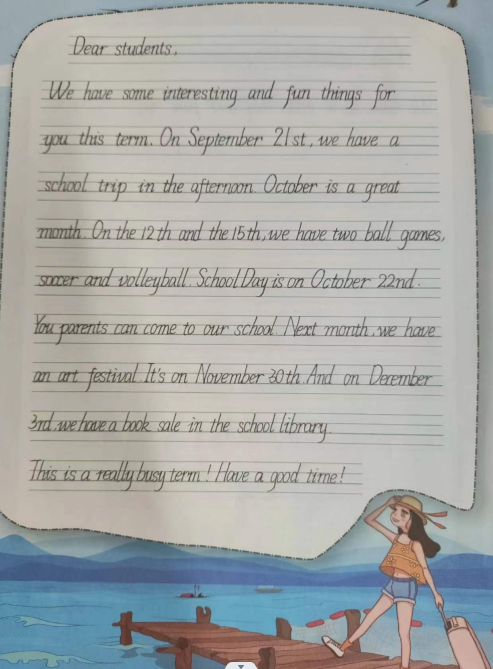 Dear students,
We have some interesting and fun things for
you this term. On September 21st, we have a
school trip in the afternoon. October is a great
month. On the 12th and the 15th, we have two ball games,
soccer and volleyball. School Day is on October 22nd.
You parents can come to our school. Next month, we have
an art festival. It's on November 30th. And on December
3rd, we have a book sale in the school library.
This is a really busy term! Have a good time!